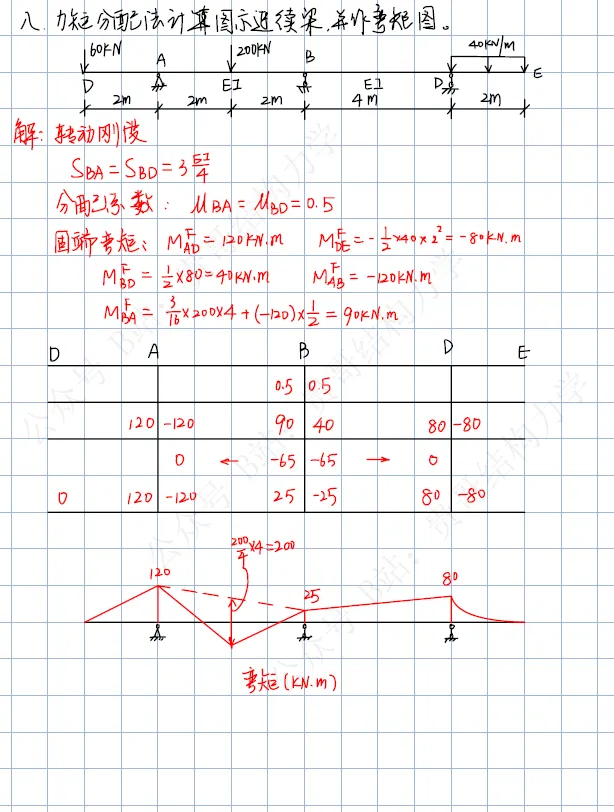 八. 力矩分配法计算图示连续梁,并作弯矩图。
60KN 200KN 40KN/m
D A EI B EI D E
2m 2m 2m 4m 2m
解: 转动刚度
S_BA = S_BD = 3 EI/4
分配系数: μ_BA = μ_BD = 0.5
固端弯矩: M^F_AD = 120KN.m M^F_DE = -1/2×40×2² = -80KN.m
M^F_BD = 1/2×80 = 40KN.m M^F_AB = -120KN.m
M^F_BA = 3/16×200×4+(-120)×1/2 = 90KN.m
D A B D E
0.5 0.5
120 -120 90 40 80 -80
0 ← -65 -65 → 0
0 120 -120 25 -25 80 -80
200/4×4=200
120 25 80
弯矩(KN.m)
公众号 B站: 贤哥结构力学
公众号 B站: 贤哥结构力学